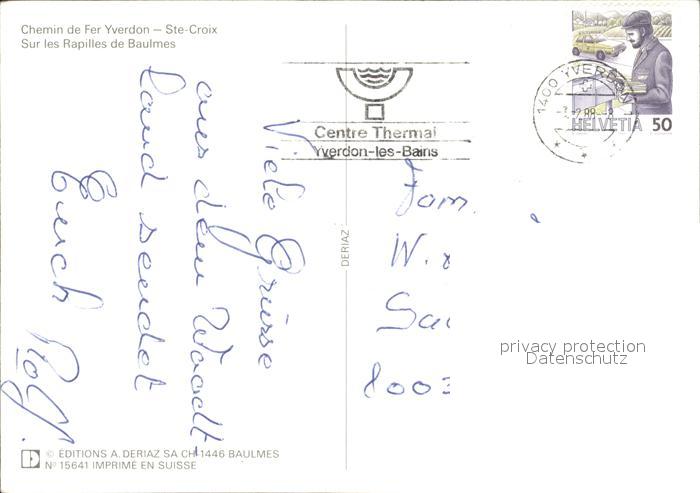 Chemin de Fer Yverdon — Ste-Croix
Sur les Rapilles de Baulmes
Viele Grüsse
aus dem Waadt-
land sendet
Euch Rolf.
Centre Thermal
Yverdon-les-Bains
1400 YVERDON
HELVETIA 50
DERIAZ
Fam.
W.
8003
privacy protection
Datenschutz
© EDITIONS A. DERIAZ SA CH-1446 BAULMES
Nº 15641 IMPRIMÉ EN SUISSE